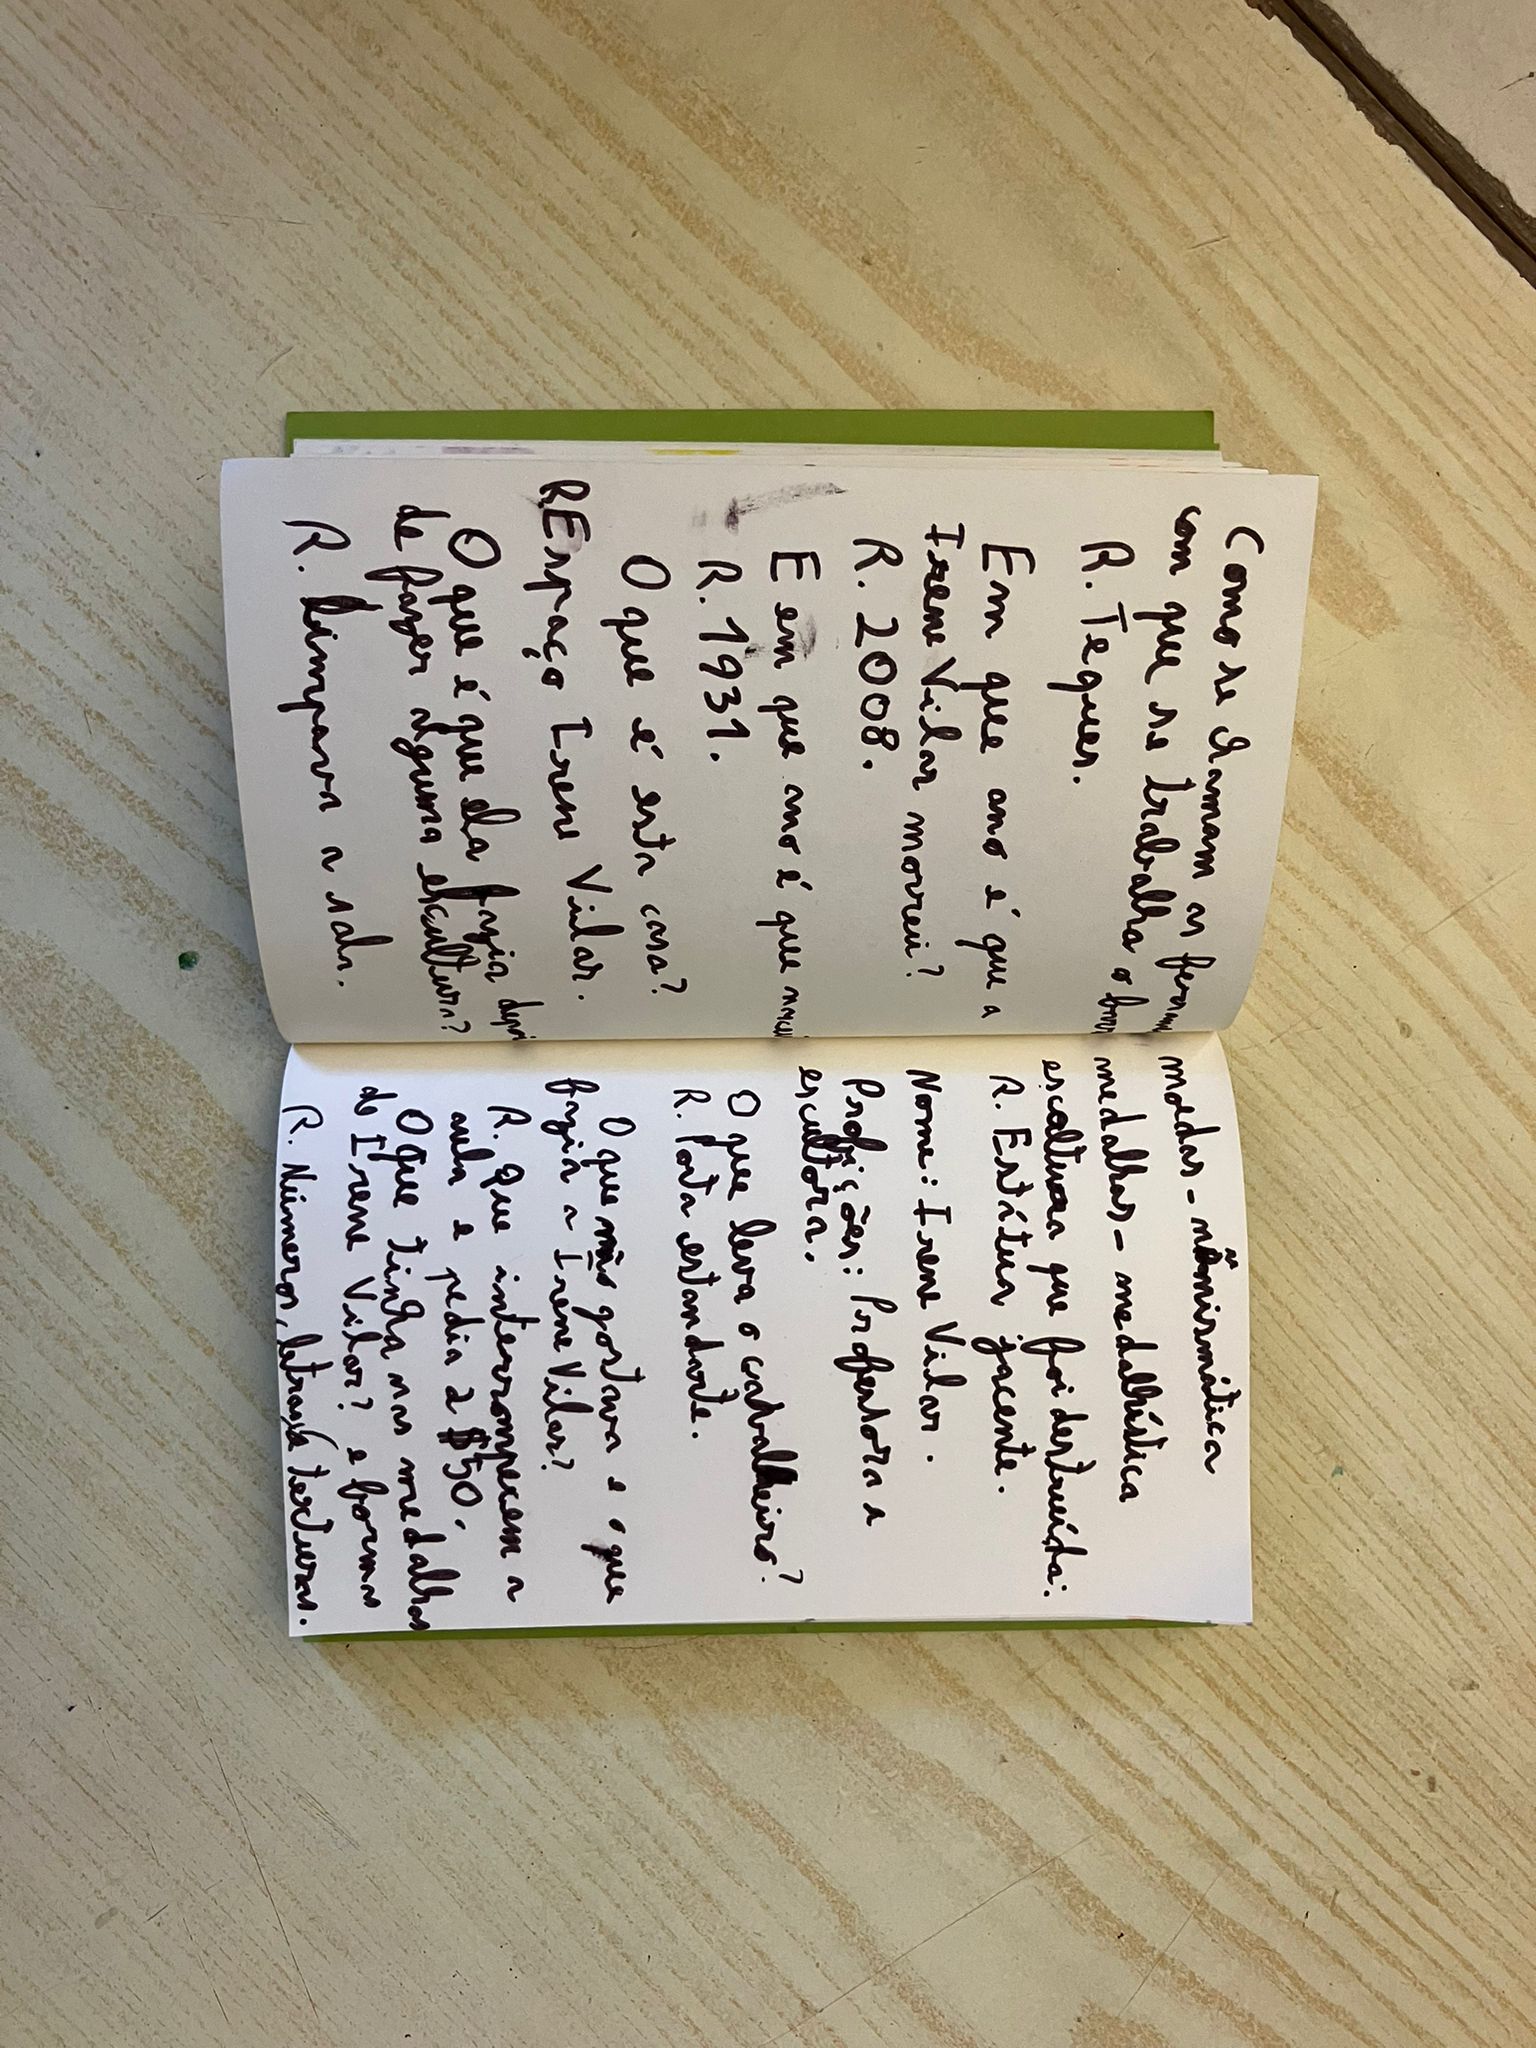 Como se chamam as
com que se trabalha o
R. Teques.
Em que ano é que a
Irene Vilar morreu?
R. 2008.
E em que ano é que
R. 1931.
O que é esta casa?
R.Espaço Irene Vilar.
O que é que ela fazia
de fazer alguma escultura?
R. limpava a sala.
moedas - númismática
medalhas - medalhística
escultura que foi destruída:
R. Estátua jacente.
Nome: Irene Vilar.
Profissões: Professora e
escultora.
O que leva o cavalheiro?
R. Porta estandarte.
O que não gostava e o que
fazia a Irene Vilar?
R. Que interrompecem a
aula e pedia 2$50.
O que tinha nas medalhas
de Irene Vilar? e formas
R. Números, letras, e texturas.